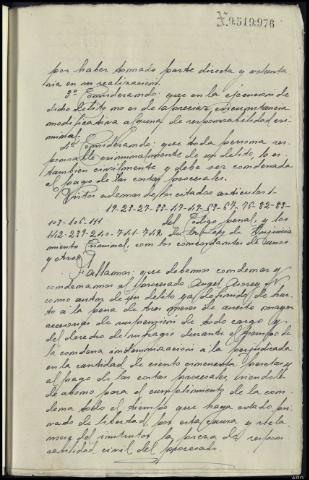 N.9.519.976
por haber tomado parte directa y volunta
ria en su realización.
3º Considerando: que en la ejecución de
dicho delito no es de apreciar circunstancia
modificativa alguna de responsabilidad cri
minal.
4º Considerando: que toda persona res
ponsable criminalmente de un delito lo es
también civilmente y debe ser condenada
al pago de las costas procesales.
Vistos además de los citados artículos 1-
19-23-27-33-47-49-53-64-76-82-83-
103-106-111 del Código penal, y los
142-239-240-741-742 de la Ley de Enjuicia
miento Criminal, con los concordantes de unos
y otros,
Fallamos: que debemos condenar y
condenamos al procesado Angel
como autor de un delito ya definido de hur
to a la pena de tres meses de arresto mayor
accesorias de suspensión de todo cargo y
del derecho de sufragio durante el tiempo de
la condena indemnización a la perjudicada
en la cantidad de ciento cincuenta pesetas y
al pago de las costas procesales, siéndole
de abono para el cumplimiento de la con
dena todo el tiempo que haya estado pri
vado de libertad por esta causa y
del instructor la pieza de respon
sabilidad civil del procesado.